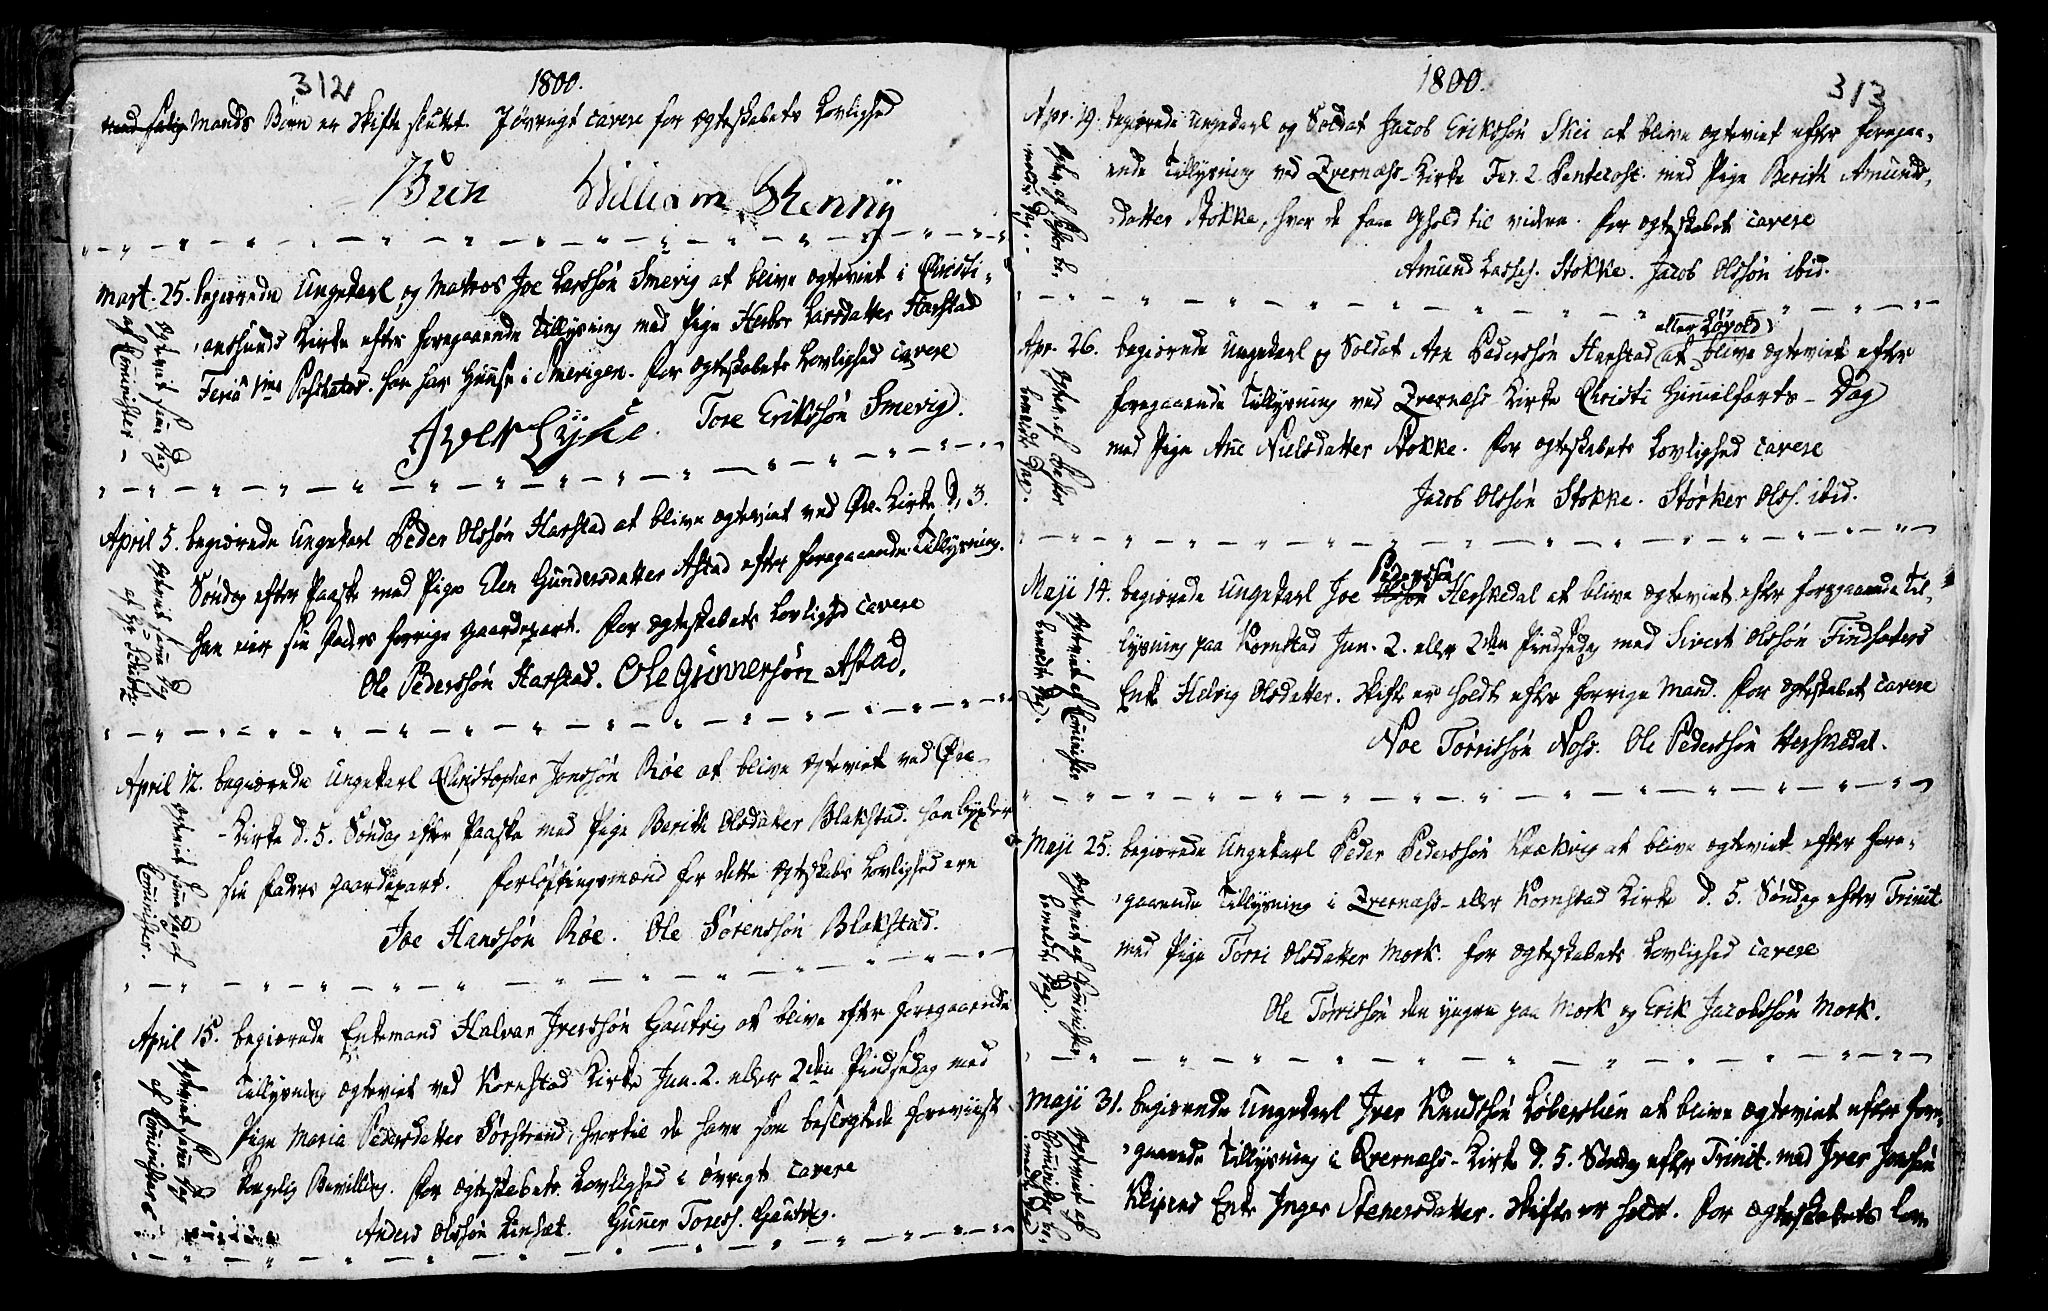 312
1800.
Mands Børn er Skifte sluttet. I øvrigt cavere for Ægteskabets Lovlighed
Buck William Shenny
Mart. 25. begiærede Ungekarl og Matros Joe Larssøn Smevig at blive ægteviet i Christi-
ansunds Kirke efter foregaaende Tillysning med Pige Larsdatter Harstad
Feria 1ma Paschatos. Han har Huuse i Smevigen. For Ægteskabets Lovlighed cavere
Iver Lyhe. Tore Erikssøn Smevig.
Ægteviet samme Dag
af Comminister
April 5. begiærede Ungekarl Peder Olssøn Harstad at blive ægteviet ved Øre-Kirke d. 3.
Søndag efter Paaske med Pige Elen Gundersdatter Astad efter foregaaende Tillysning.
Han eier sin Faders forrige Gaardepart. For Ægteskabets Lovlighed cavere
Ole Pederssøn Harstad. Ole Gunnersøn Astad.
Ægteviet samme Dag
af Hr.
April 12. begiærede Ungekarl Christopher Jonssøn Røe at blive ægteviet ved Øre-
Kirke d. 5. Søndag efter Paaske med Pige Berith Olsdatter Blakstad. Han byxler
sin Faders Gaardepart. Forløftingsmænd for dette Ægteskabs Lovlighed ere
Joe Hanssøn Røe. Ole Sørenssøn Blakstad.
Ægteviet samme Dag af
Comminister.
April 15. begiærede Enkemand Halvar Iverssøn Gautvig at blive efter foregaaende
Tillysning ægteviet ved Kornstad Kirke Jun. 2. eller 2den Pindsedag med
Pige Maria Pedersdatter Sørstrand, hvortil de have som beslegtede foreviist
Kongelig Bevilling. For Ægteskabets Lovlighed i øvrigt cavere
Anders Olssøn Linset. Gunner Toress. Gautvig.
Ægteviet samme Dag
af Comminister
1800.
313
Apr. 19. begiærede Ungekarl og Soldat Jacob Erikssøn Skei at blive ægteviet efter foregaa-
ende Tillysning ved Qvernæss-Kirke Fer. 2. Pentecost. med Pige Berith Amunds-
datter Stokke, hvor de faae Ophold til videre. For Ægteskabet cavere
Amund Lassес. Stokke. Jacob Olssøn ibid.
Ægtev. af Pastor be-
meldte Dag.
eller Løvold
Apr. 26. begiærede Ungekarl og Soldat Are Pederssøn Harstad at blive ægteviet efter
foregaaende Tillysning ved Qvernæss Kirke Christi Himmelfarts-Dag
med Pige Ane Nielsdatter Stokke. For Ægteskabets Lovlighed cavere
Jacob Olssøn Stokke. Størker Olss. ibid.
Ægtev. af Pastor
bemeldte Dag.
Pederssøn
Maji 14. begiærede Ungekarl Joe Olssøn Herskedal at blive ægteviet efter foregaaende Til-
lysning paa Kornstad Jun. 2. eller 2den Pindsedag med Sivert Olssøn Findsæters
Enke Helvig Olsdatter. Skifte er holdt efter forrige Mand. For Ægteskabet cavere
Noe Tørrissøn Noss. Ole Pederssøn Herskedal.
Ægteviet af Comminister
bemeldte Dag.
Maji 25. begiærede Ungekarl Peder Pederssøn Krækvig at blive ægteviet efter fore-
gaaende Tillysning i Qvernæss- eller Kornstad Kirke d. 5. Søndag efter Trinit.
med Pige Torri Olsdatter Mork. For Ægteskabets Lovlighed cavere
Ole Tørrissøn den yngre paa Mork og Erik Jacobssøn Mork.
Ægteviet af Comminister
bemeldte Dag.
Maji 31. begiærede Ungekarl Iver Knudssøn Løberslien at blive ægteviet efter fore-
gaaende Tillysning i Qvernæss-Kirke d. 5. Søndag efter Trinit. med Iver Jonsøn
Klipens Enke Inger Stenersdatter. Skifte er holdt. For Ægteskabets Lov-
Ægteviet af
Comminister be-
meldte Dag